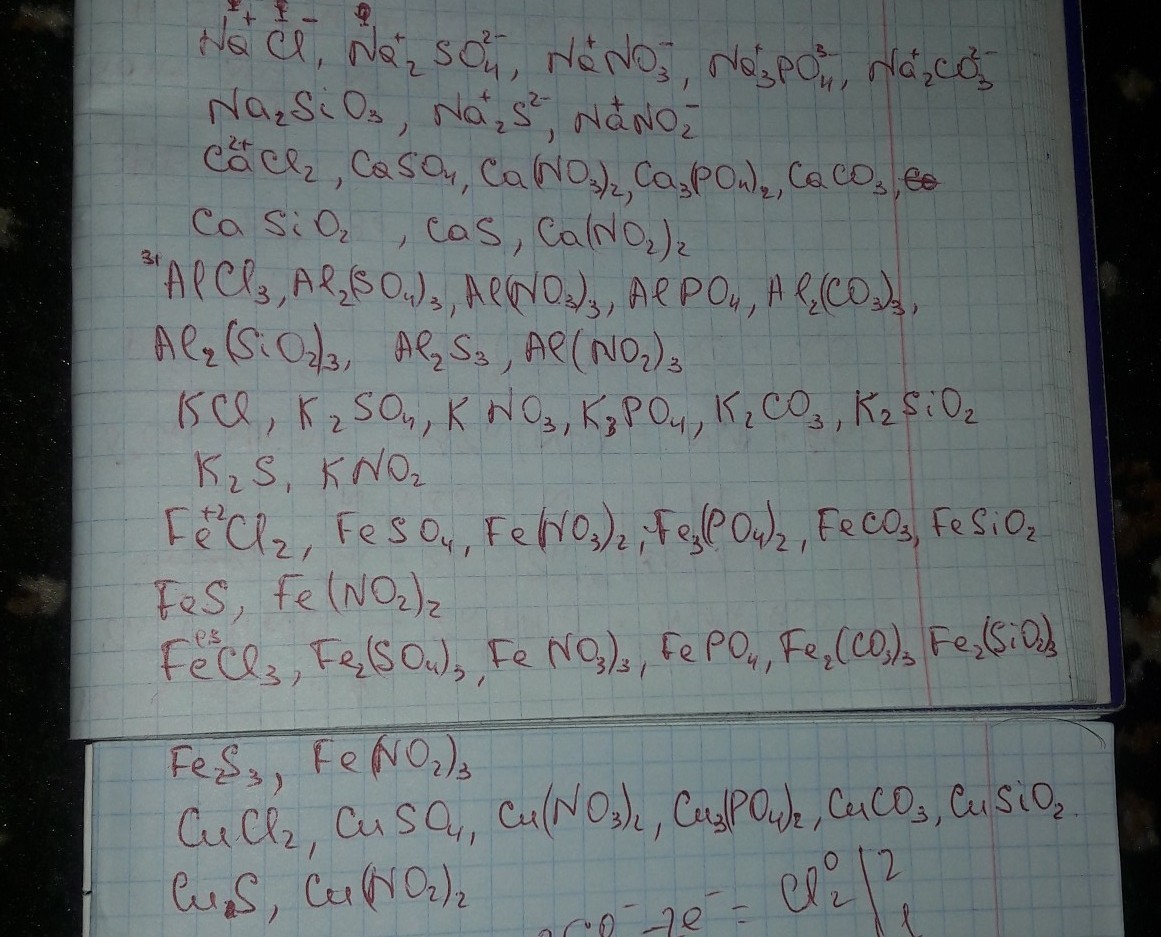 Na⁺Cl⁻, Na⁺₂SO₄²⁻, Na⁺NO₃⁻, Na⁺₃PO₄³⁻, Na⁺₂CO₃²⁻
Na₂SiO₃, Na⁺₂S²⁻, Na⁺NO₂⁻
Ca²⁺Cl₂, CaSO₄, Ca(NO₃)₂, Ca₃(PO₄)₂, CaCO₃,
CaSiO₂, CaS, Ca(NO₂)₂
AlCl₃, Al₂(SO₄)₃, Al(NO₃)₃, AlPO₄, Al₂(CO₃)₃,
Al₂(SiO₂)₃, Al₂S₃, Al(NO₂)₃
KCl, K₂SO₄, KNO₃, K₃PO₄, K₂CO₃, K₂SiO₂
K₂S, KNO₂
Fe⁺²Cl₂, FeSO₄, Fe(NO₃)₂, Fe₃(PO₄)₂, FeCO₃, FeSiO₂
FeS, Fe(NO₂)₂
FeCl₃, Fe₂(SO₄)₃, Fe NO₃)₃, FePO₄, Fe₂(CO₃)₃ Fe₂(SiO₂)₃
Fe₂S₃, Fe(NO₂)₃
CuCl₂, CuSO₄, Cu(NO₃)₂, Cu₃(PO₄)₂, CuCO₃, CuSiO₂.
CuS, Cu(NO₂)₂
e⁻ = Cl₂⁰ | 2